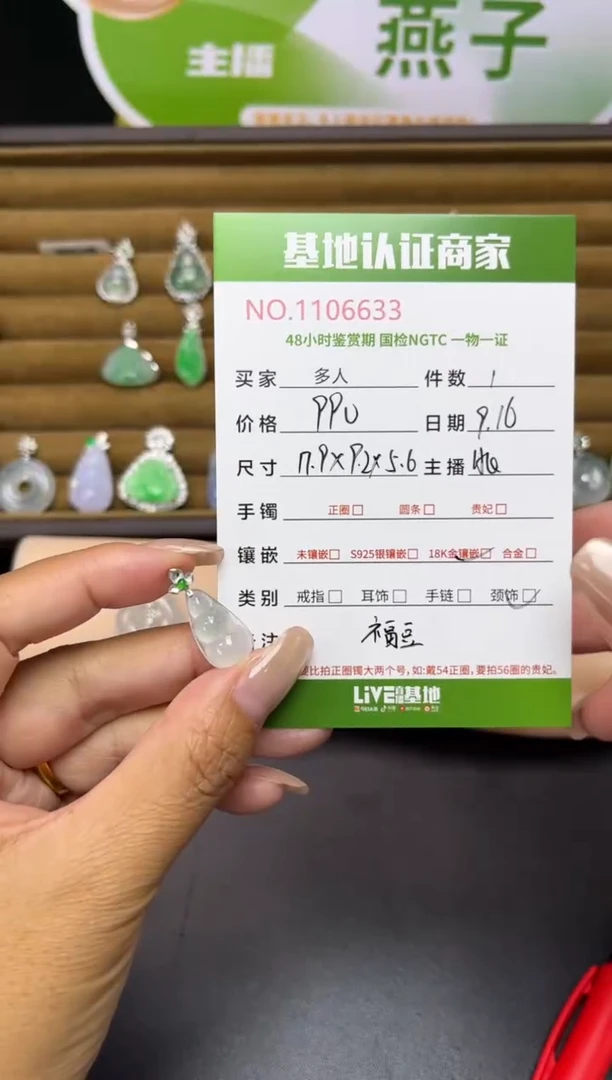 燕子
主播
基地认证商家
NO.1106633
48小时鉴赏期 国检NGTC 一物一证
买家 多人 件数 1
价格 PPU 日期 9.16
尺寸 17.9×9.2×5.6 主播
手镯 正圈□ 圆条□ 贵妃□
镶嵌 未镶嵌□ S925银镶嵌□ 18K金镶嵌☑ 合金□
类别 戒指□ 耳饰□ 手链□ 颈饰☑
注 福豆
比拍正圈镯大两个号,如:戴54正圈,要拍56圈的贵妃。
LiVE基地